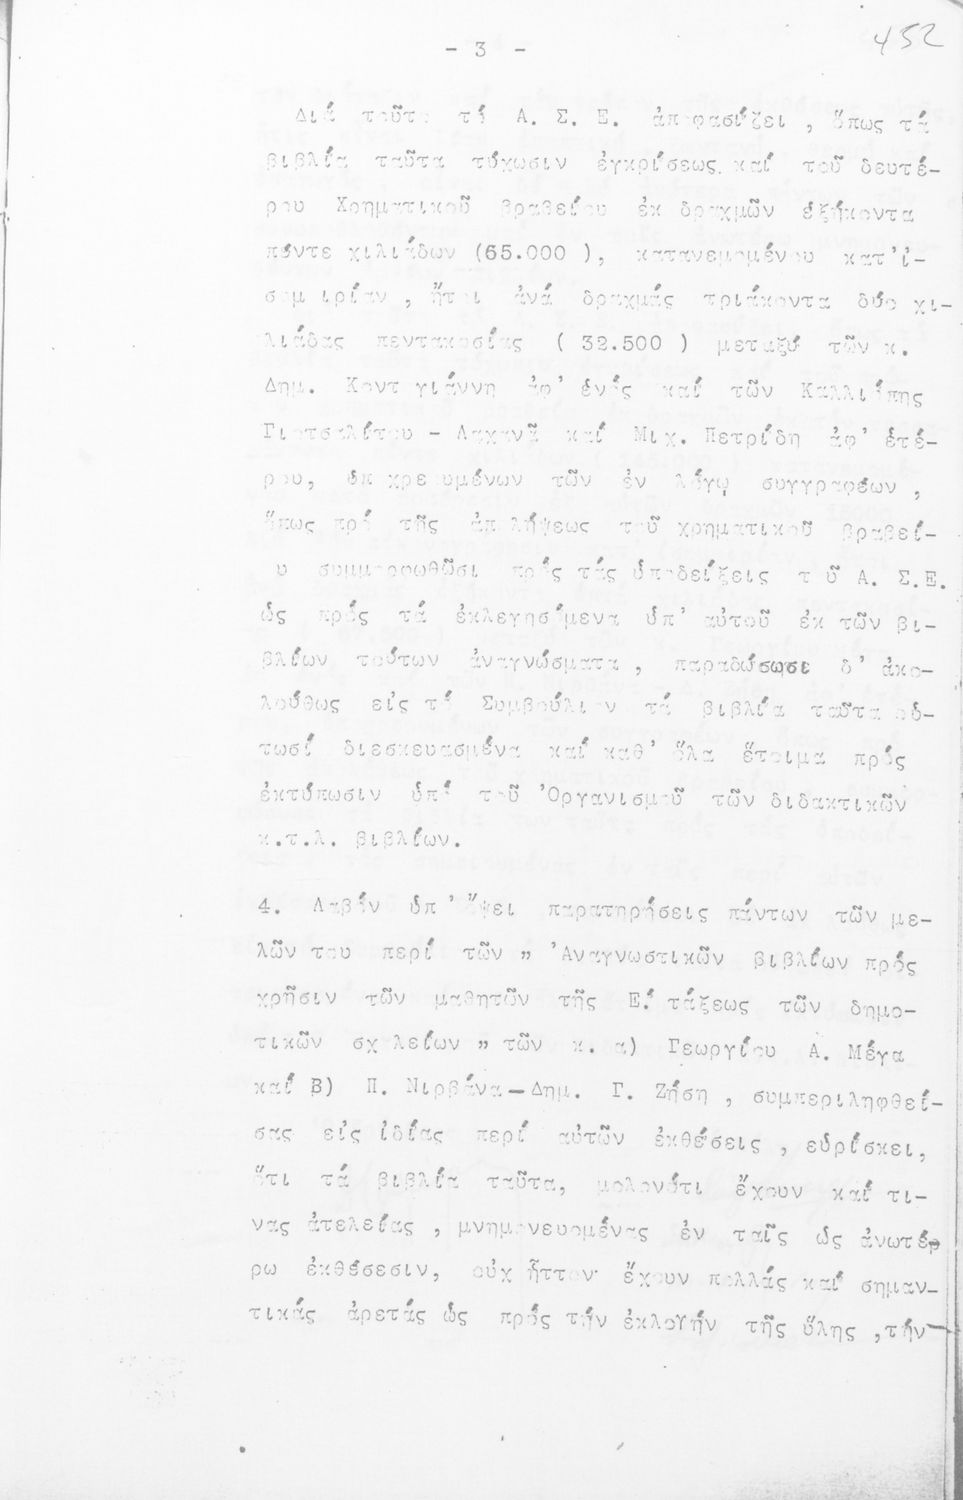 452
- 3 -
Διά τοῦτο τό Α. Σ. Ε. ἀποφασίζει , ὅπως τά
βιβλία ταῦτα τύχωσιν ἐγκρίσεως καί τοῦ δευτέ-
ρου Χρηματικοῦ βραβείου ἐκ δραχμῶν ἑξήκοντα
πέντε χιλιάδων (65.000 ), κατανεμομένου κατ’ἰ-
σομοιρίαν , ἤτοι ἀνά δραχμάς τριάκοντα δύο χι-
λιάδας πεντακοσίας ( 32.500 ) μεταξύ τῶν κ.
Δημ. Κοντογιάννη ἀφ’ ἑνός καί τῶν Καλλιόπης
Γιοτσαλίτου - Λαχανᾶ καί Μιχ. Πετρίδη ἀφ’ ἑτέ-
ρου, ὑποχρεουμένων τῶν ἐν λόγῳ συγγραφέων ,
ὅπως πρό τῆς ἀπολήψεως τοῦ χρηματικοῦ βραβεί-
ου συμμορφωθῶσι πρός τάς ὑποδείξεις τοῦ Α. Σ.Ε.
ὡς πρός τά ἐκλεγησόμενα ὑπ’ αὐτοῦ ἐκ τῶν βι-
βλίων τούτων ἀναγνώσματα , παραδώσωσι δ’ ἀκο-
λούθως εἰς τό Συμβούλιον τά βιβλία ταῦτα οὑ-
τωσί διεσκευασμένα καί καθ’ ὅλα ἕτοιμα πρός
ἐκτύπωσιν ὑπό τοῦ ’Οργανισμοῦ τῶν διδακτικῶν
κ.τ.λ. βιβλίων.
4. Λαβόν ὑπ’ ὄψει παρατηρήσεις πάντων τῶν με-
λῶν του περί τῶν „ ’Αναγνωστικῶν βιβλίων πρός
χρῆσιν τῶν μαθητῶν τῆς Ε΄. τάξεως τῶν δημο-
τικῶν σχολείων „ τῶν κ. α) Γεωργίου Α. Μέγα
καί Β) Π. Νιρβάνα – Δημ. Γ. Ζήση , συμπεριληφθεί-
σας εἰς ἰδίας περί αὐτῶν ἐκθέσεις , εὑρίσκει,
ὅτι τά βιβλία ταῦτα, μολονότι ἔχουν καί τι-
νας ἀτελείας , μνημονευομένας ἐν ταῖς ὡς ἀνωτέρ
ρω ἐκθέσεσιν, οὐχ ἧττον ἔχουν πολλάς καί σημαν-
τικάς ἀρετάς ὡς πρός τήν ἐκλογήν τῆς ὕλης ,τήν